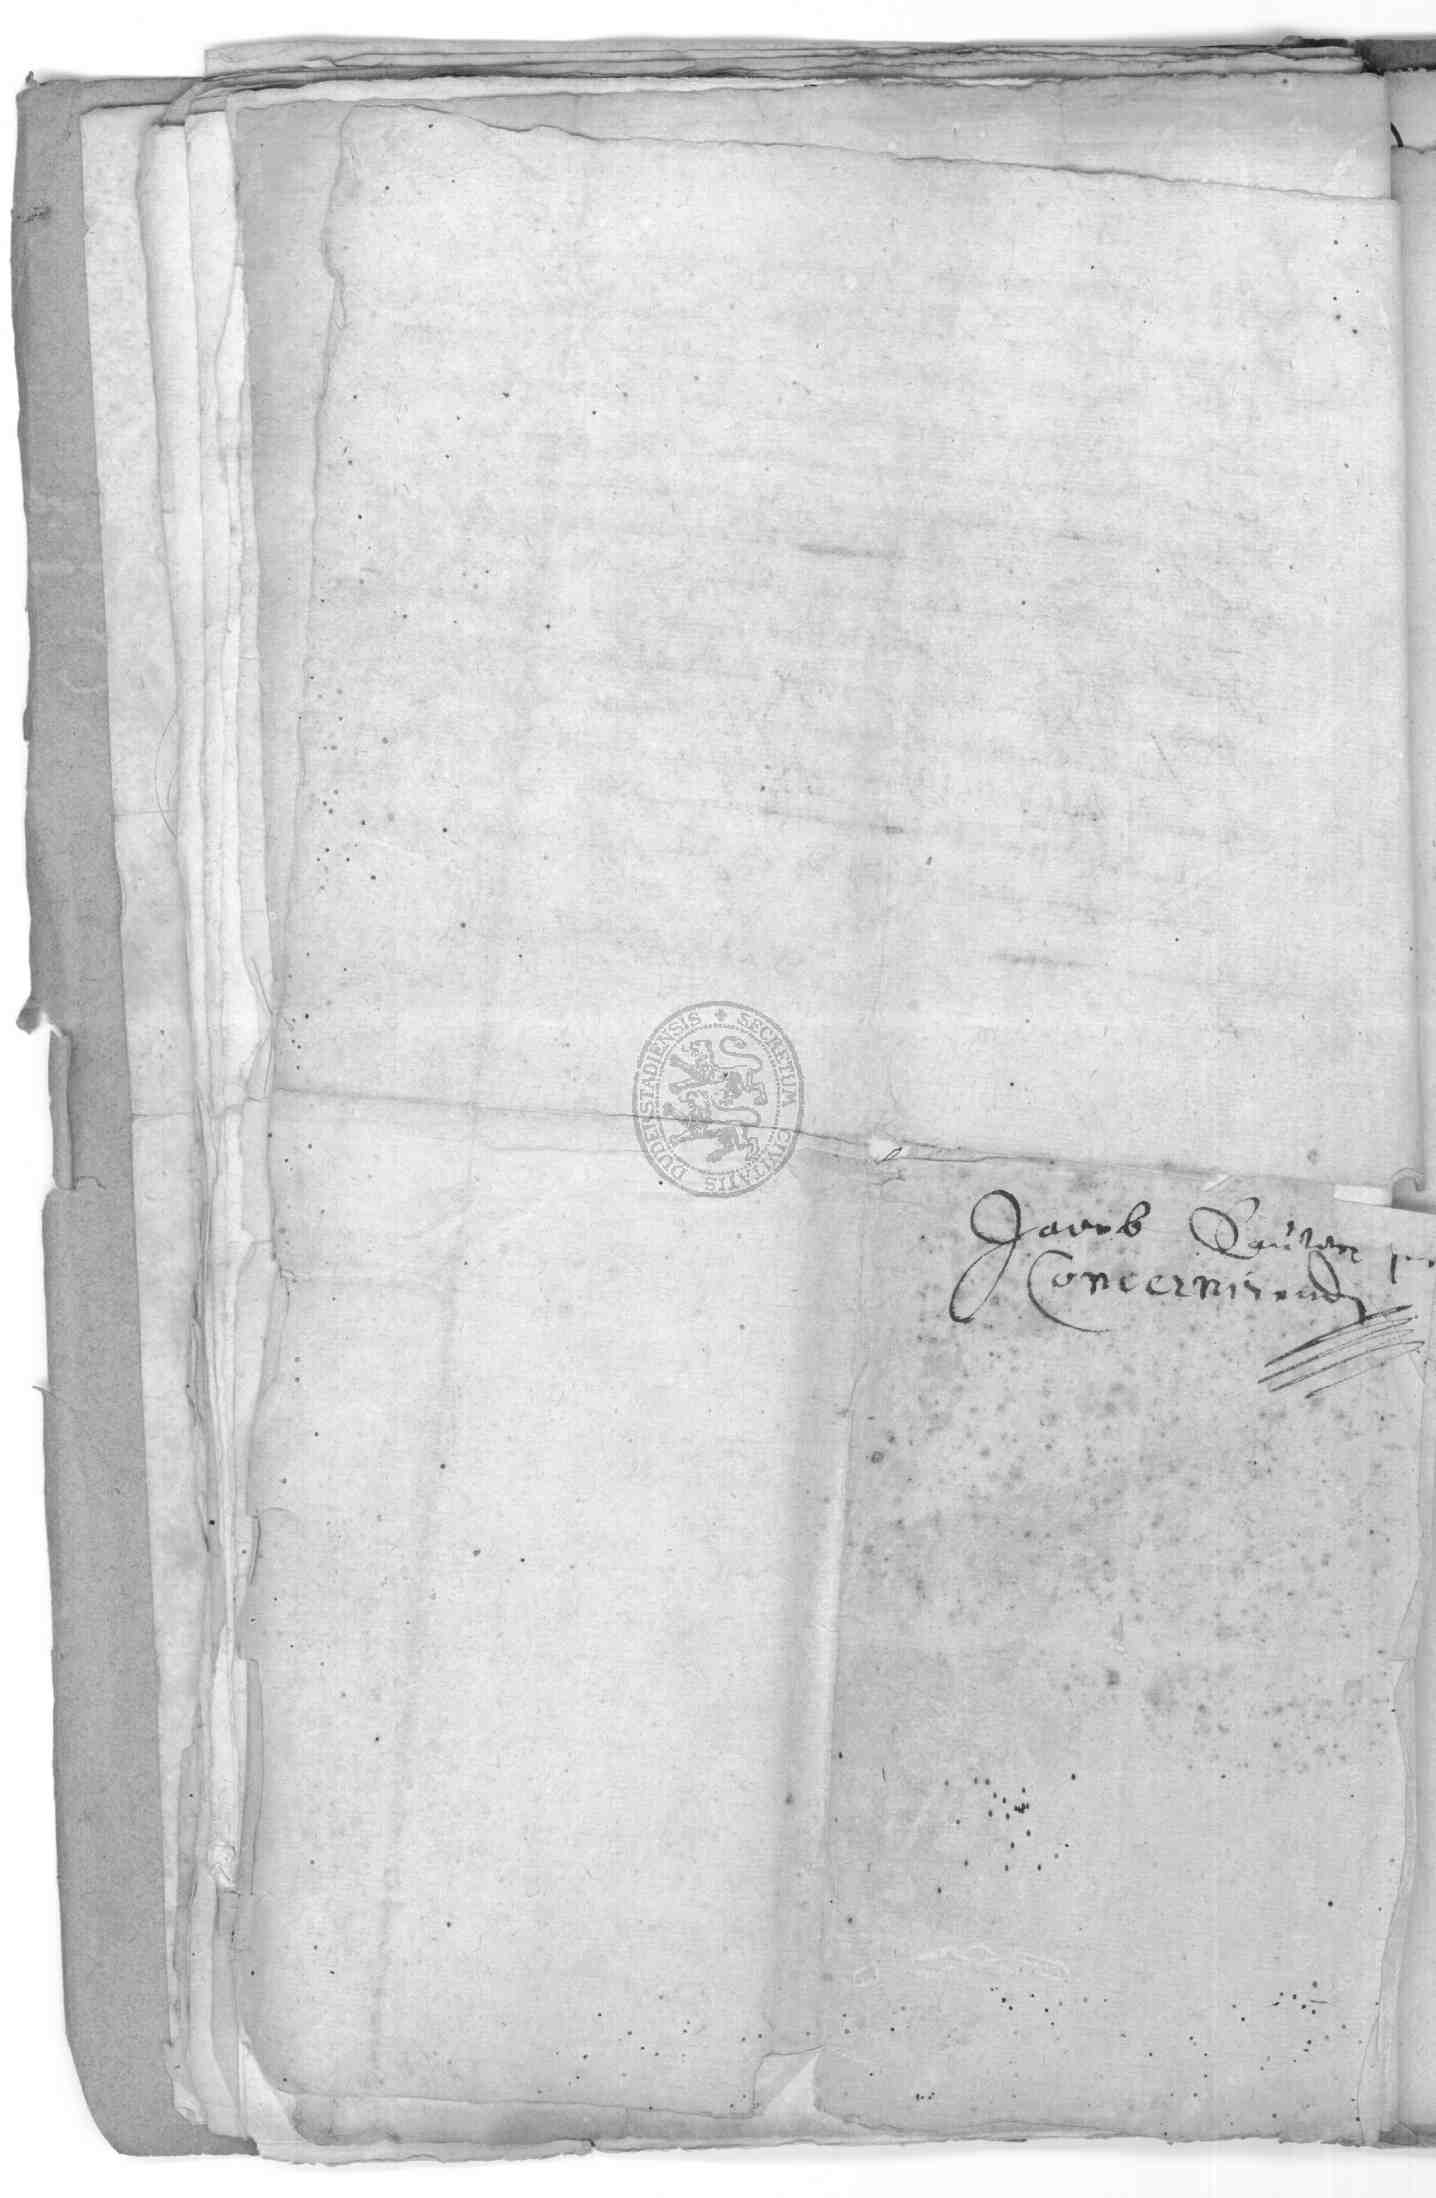 SECRETUM CIVITATIS DUDERSTADIENSIS
Jacob
Concernirend